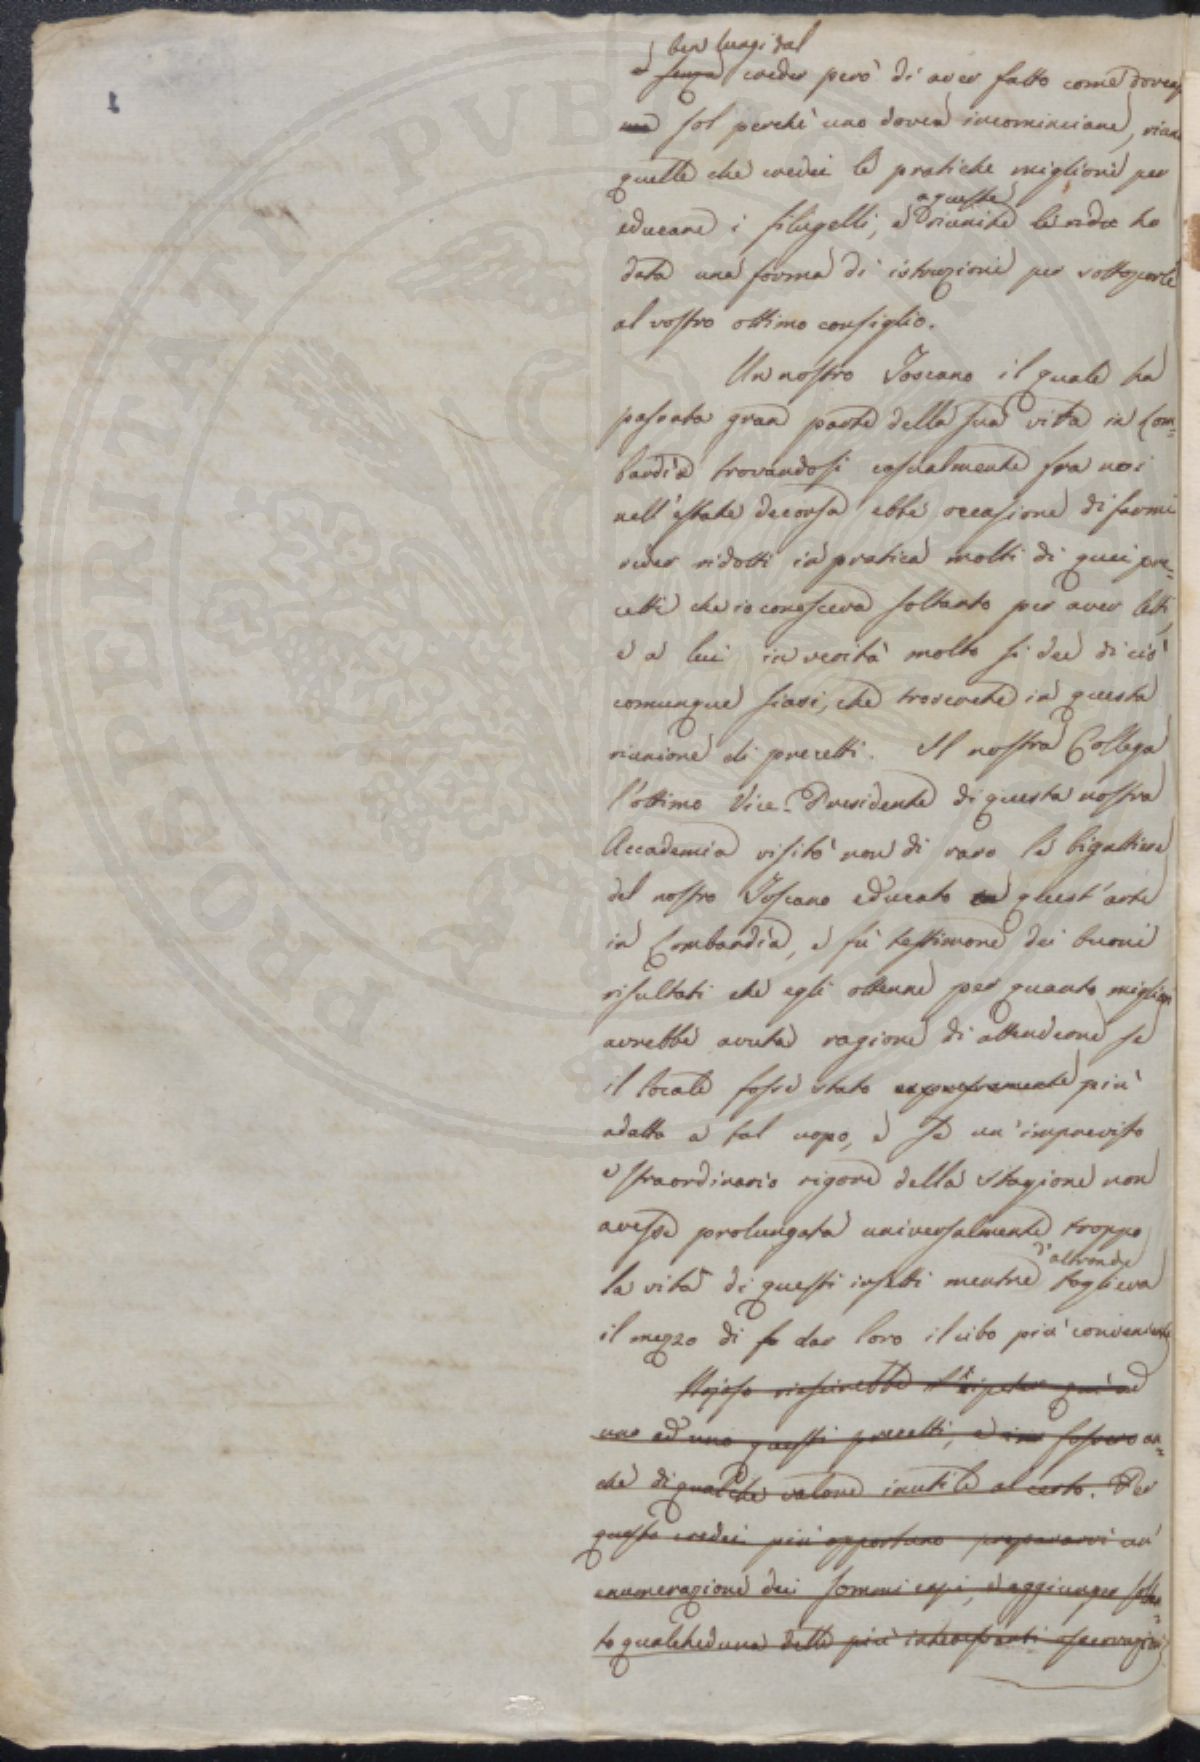 ben lungi dal
e senza creder però di aver fatto come dovea
ma sol perchè uno dovea incominciare,
quelle che credei le pratiche migliori per
a queste
educare i filugelli, e riunite le ridu ho
data una forma di istruzione per sottoporle
al vostro ottimo consiglio.
Un nostro Toscano il quale ha
passata gran parte della sua vita in Lom=
bardia trovandosi casualmente fra noi
nell'estate decorsa ebbe occasione di farmi
veder ridotti in pratica molti di quei pre=
cetti che io conosceva soltanto per aver letti,
e a lui in verità molto si dee di ciò
comunque siasi, che troverete in questa
riunione di precetti. Il nostro Collega
l'ottimo Vice-Presidente di questa nostra
Accademia visitò non di raro le bigattiere
del nostro Toscano educato in quest'arte
in Lombardia, e fù testimone dei buoni
risultati che egli ottenne per quanto migliori
avrebbe avuta ragione di attendere se
il locale fosse stato espressamente più
adatto a tal uopo, e se un'imprevisto
e straordinario rigore della stagione non
avesse prolungata universalmente troppo
d'altronde
la vita di questi insetti mentre toglieva
il mezzo di fo dar loro il cibo più conveniente
Nojoso riescirebbe il ripeter quì ad
uno ad uno questi precetti, e fossero an=
che di qualche valore inutile al certo. Per
questo credei più opportuno prepararvi un'
enumerazione dei sommi capi, e aggiunger soltan=
to qualcheduna delle più interessanti osservazioni
PROSPERITATI PVBLICAE